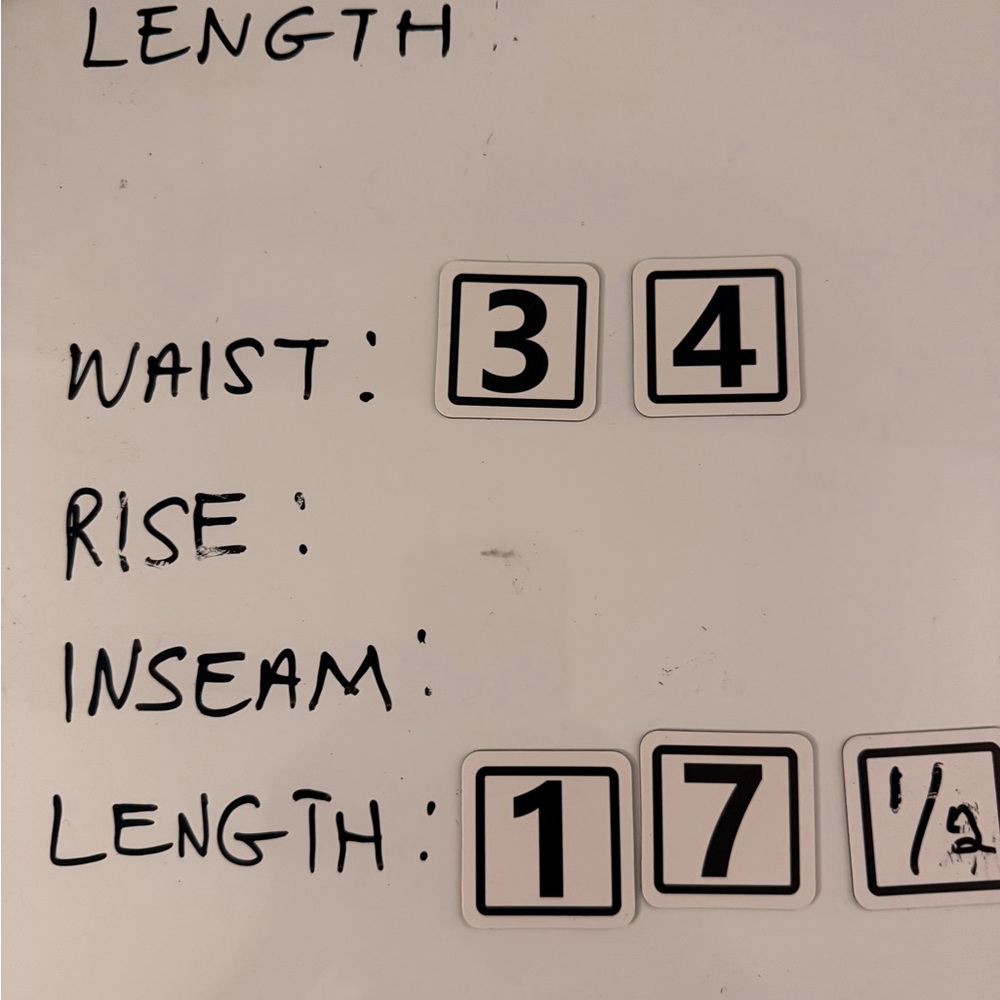 LENGTH
WAIST: 34
RISE:
INSEAM:
LENGTH: 17 1/2